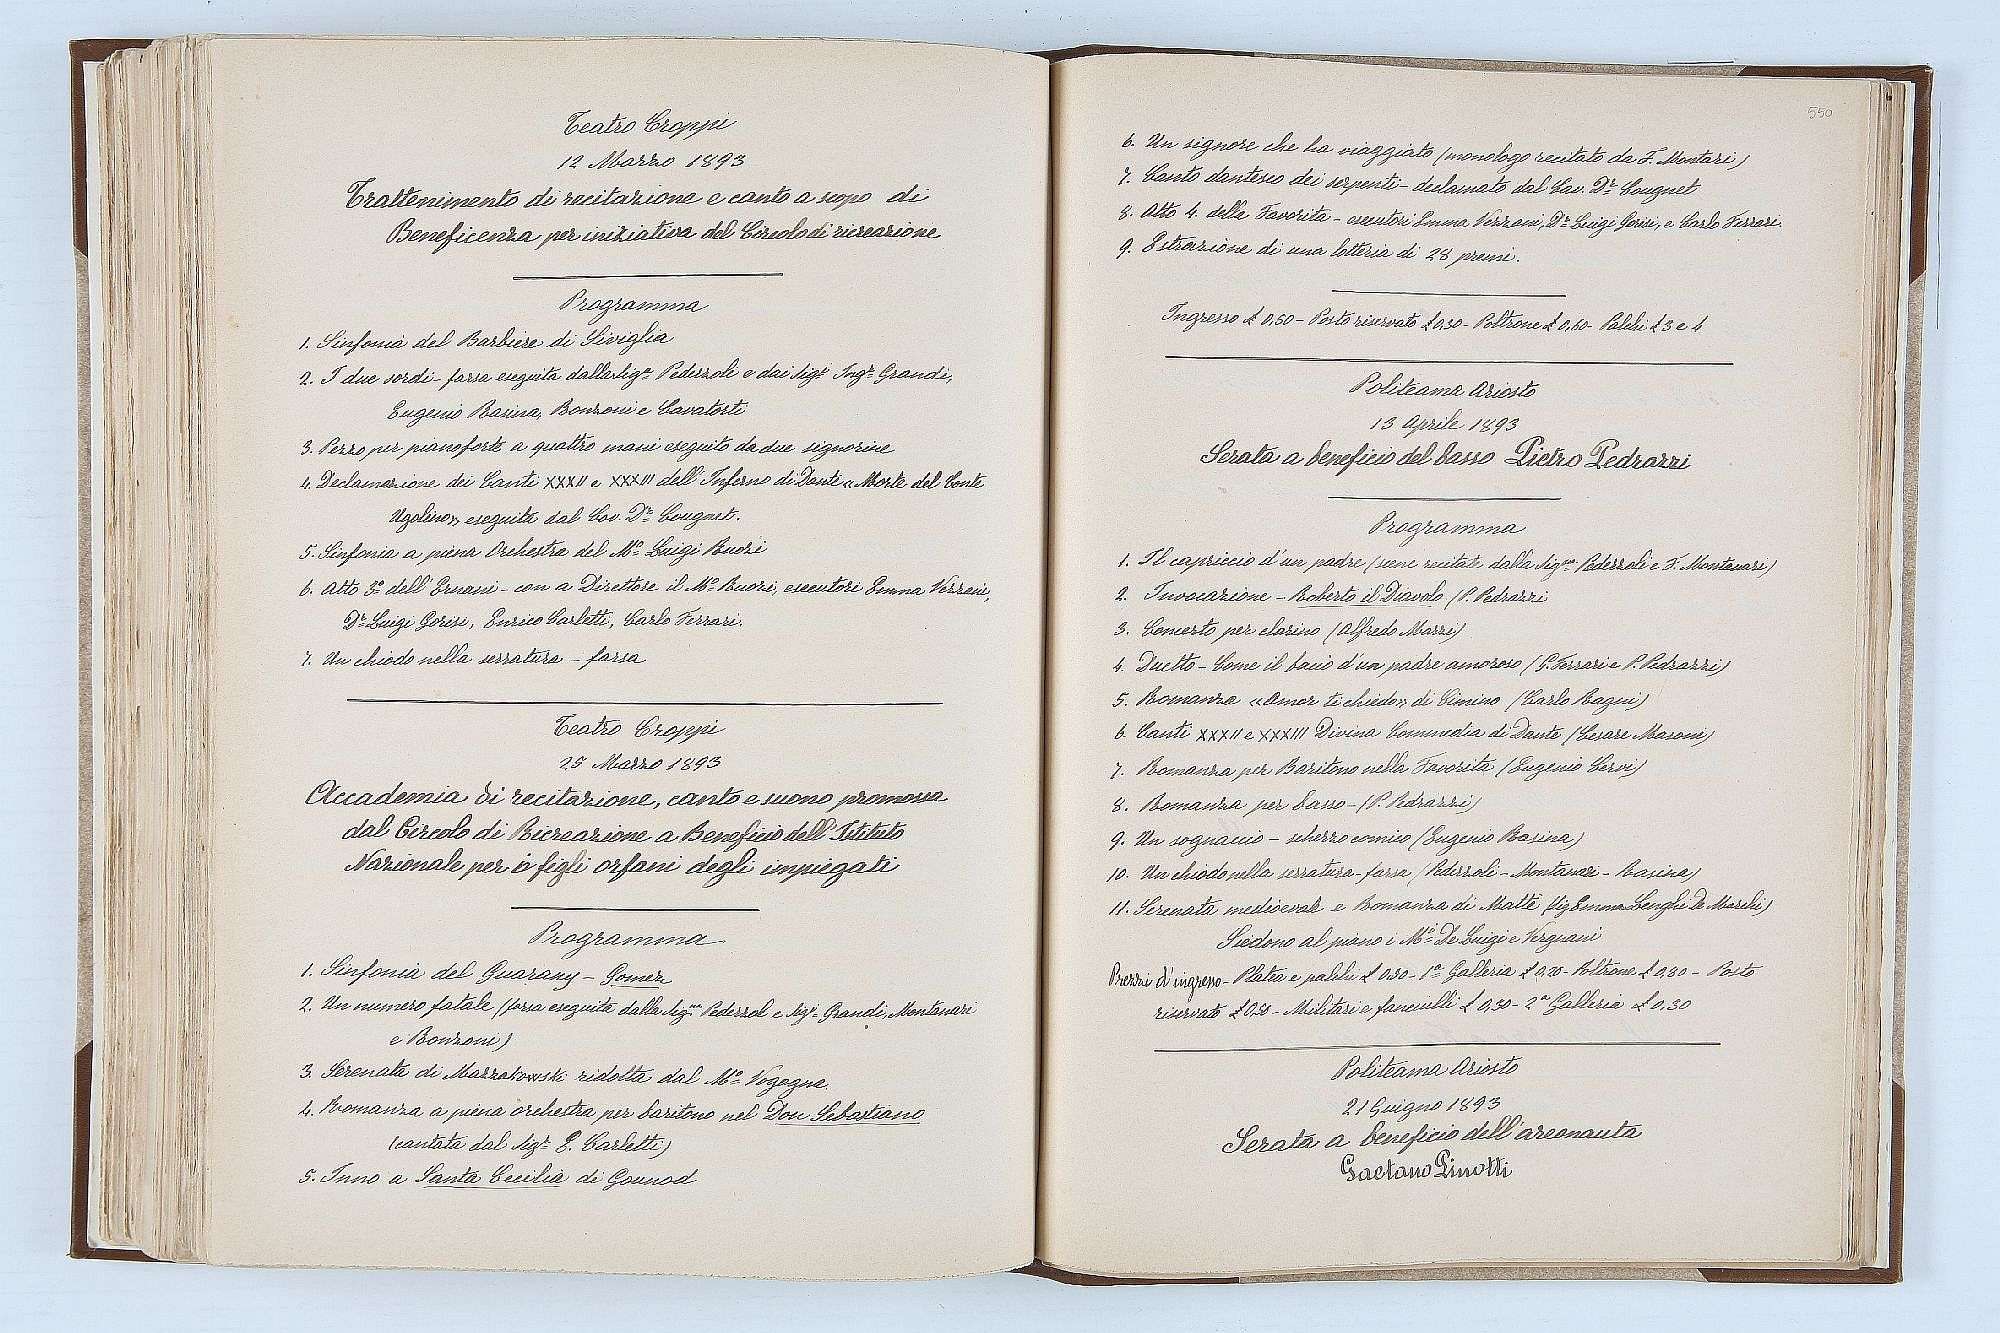 Teatro Croppi
12 Marzo 1893
Trattenimento di recitazione e canto a scopo di
Beneficenza per iniziativa del Circolo di ricreazione
Programma
1. Sinfonia del Barbiere di Siviglia
2. I due sordi - farsa eseguita dalla Sigª Pederzoli e dai Sigⁱ Ingʳ Grandi,
Eugenio Rasina, Bonzoni e Cavatorti
3. Pezzo per pianoforte a quattro mani eseguito da due signorine
4. Declamazione dei Canti XXXII e XXXIII dell'Inferno di Dante «Morte del Conte
Ugolino», eseguita dal Cav. Dʳ Cougnet.
5. Sinfonia a piena Orchestra del Mº Luigi Ruozi
6. Atto 3º dell'Ernani - con a Direttore il Mº Ruozi, esecutori Emma Vezzani,
Dʳ Luigi Gorisi, Enrico Carletti, Carlo Ferrari.
7. Un chiodo nella serratura - farsa
Teatro Croppi
25 Marzo 1893
Accademia di recitazione, canto e suono promossa
dal Circolo di Ricreazione a Beneficio dell'Istituto
Nazionale per i figli orfani degli impiegati
Programma
1. Sinfonia del Guarany - Gomez
2. Un numero fatale (farsa eseguita dalla Sigⁿᵃ Pederzol e Sigⁱ Grandi, Montanari
e Bonzoni)
3. Serenata di Mazzakowski ridotta dal Mº Vogogna
4. Romanza a piena orchestra per baritono nel Don Sebastiano
(cantata dal Sigʳ E. Carletti)
5. Inno a Santa Cecilia di Gounod
550
6. Un signore che ha viaggiato (monologo recitato da F. Montari)
7. Canto dantesco dei serpenti - declamato dal Cav. Dʳ Cougnet
8. Atto 4. della Favorita - esecutori Emma Vezzani, Dʳ Luigi Gorisi, e Carlo Ferrari.
9. Estrazione di una lotteria di 28 premi.
Ingresso £ 0,50 - Posto riservato £ 0,30 - Poltrone £ 0,60 - Palchi £ 3 e 4
Politeama Ariosto
13 Aprile 1893
Serata a beneficio del basso Pietro Pedrazzi
Programma
1. Il capriccio d'un padre (scene recitate dalla Sigⁿᵃ Pederzoli e F. Montanari)
2. Invocazione - Roberto il Diavolo (P. Pedrazzi
3. Concerto per clarino (Alfredo Mazzi)
4. Duetto - Come il bacio d'un padre amoroso (G. Ferrari e P. Pedrazzi)
5. Romanza «Amor ti chiedo» di Cimino (Carlo Ragni)
6. Canti XXXII e XXXIII Divina Commedia di Dante (Cesare Masoni)
7. Romanza per Baritono nella Favorita (Eugenio Cervi)
8. Romanza per basso - (P. Pedrazzi)
9. Un sognaccio - scherzo comico (Eugenio Rasina)
10. Un chiodo nella serratura - farsa (Pederzoli - Montanari - Rasina)
11. Serenata medioevale e Romanza di Mattè (Sig Emma Lenghi De Marchi)
Siedono al piano i Mⁱ De Luigi e Vergnani
Prezzi d'ingresso - Platea e palchi £ 0,50 - 1ª Galleria £ 0,70 - Poltrone £ 0,80 - Posto
riservato £ 0,50 - Militari e fanciulli £ 0,30 - 2ª Galleria £ 0,30
Politeama Ariosto
21 Giugno 1893
Serata a beneficio dell'areonauta
Gaetano Pinotti